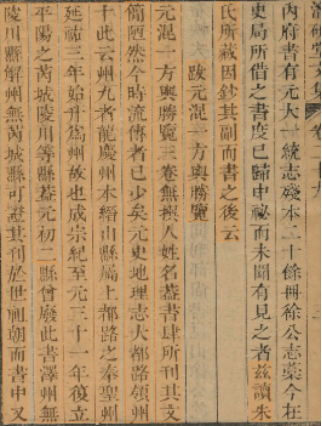 潛研堂文集 卷二十九
內府書有元大一統志殘本二十餘冊徐公志藁今在
史局所借之書度已歸中祕而未聞有見之者茲讀朱
氏所藏因鈔其副而書之後云
跋元混一方輿勝覽
元混一方輿勝覽三卷無撰人姓名蓋書肆所刊其文
簡陋然今時流傳者已少矣元史地理志大都路領州
十此云州九者龍慶州本縉山縣屬上都路之奉聖州
延祐三年始升為州故也成宗紀至元三十一年復立
平陽之芮城陵川等縣蓋元初二縣曾廢此書澤州無
陵川縣解州無芮城縣可證其刊於世祖朝而書中又